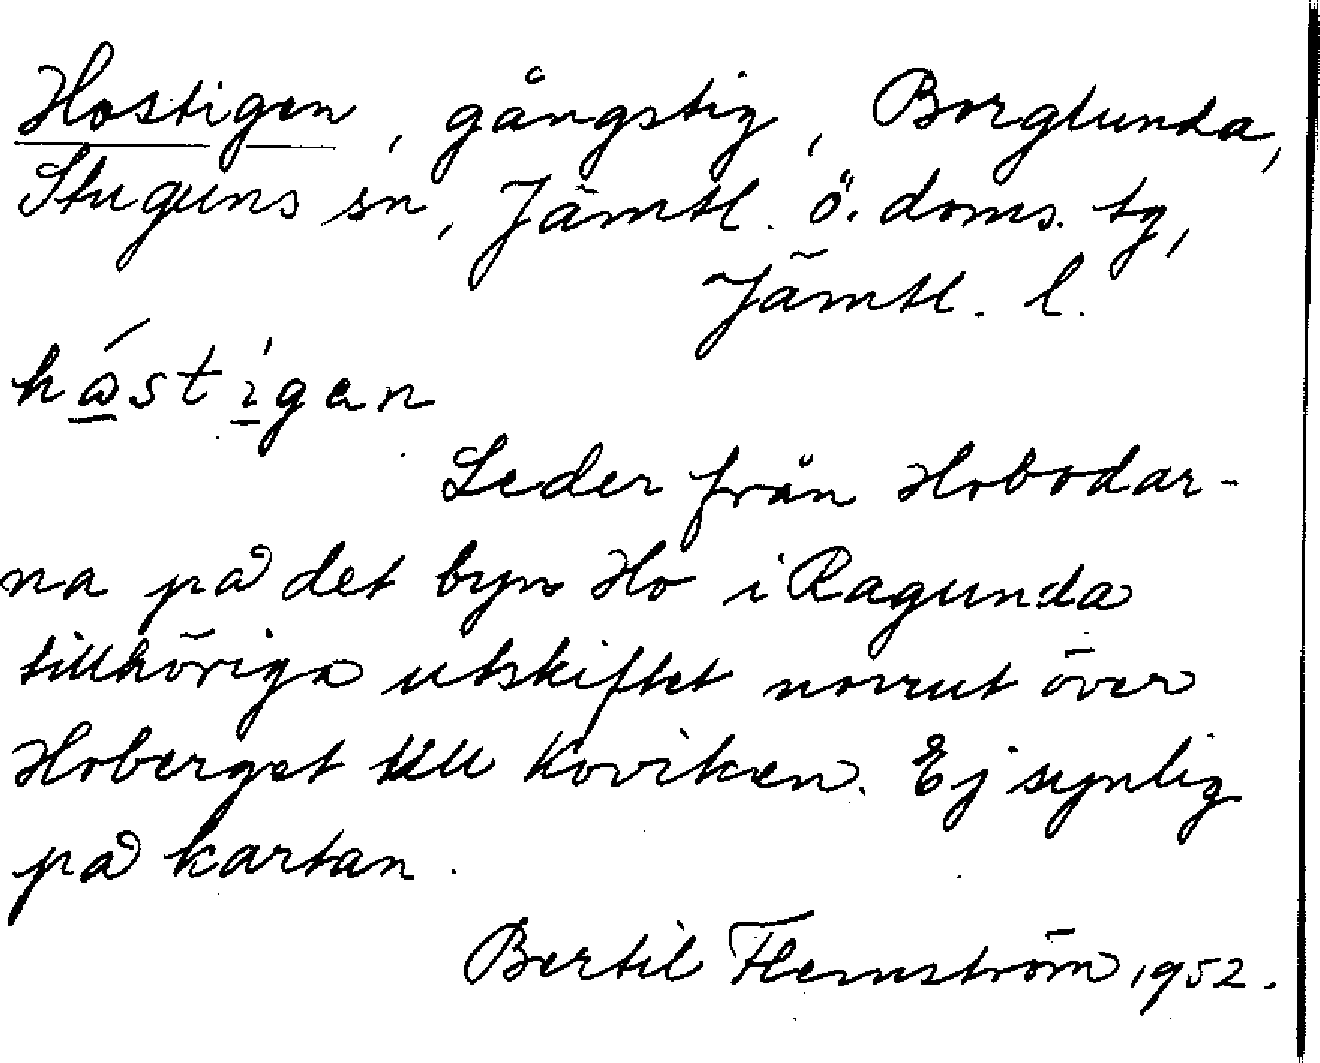 Hostigen, gångstig, Borglunda,
Stuguns sn, Jämtl. ö. doms. tg,
Jämtl. l.
hóstígen
Leder från Hobodar-
na på det byn Ho i Ragunda
tillhöriga utskiftet norrut över
Hoberget till Koviken. Ej synlig
på kartan.
Bertil Flemström, 1952.